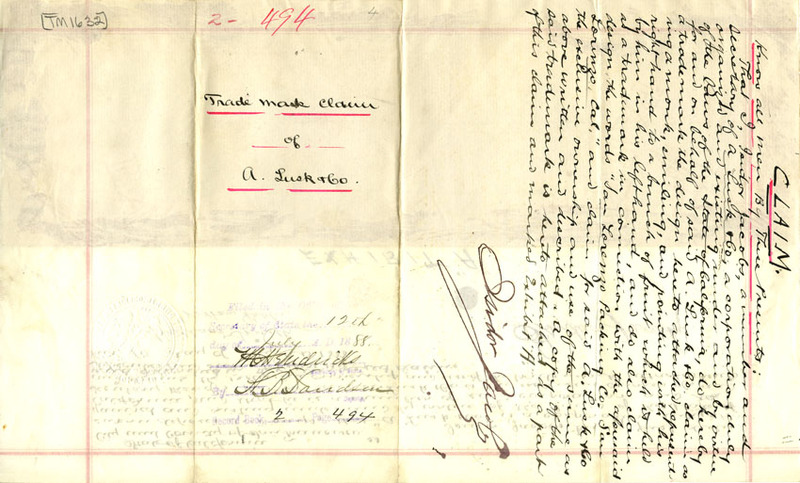 [TM1632]
2 - 494
4
Trade mark Claim
of
A. Lusk & Co.
Filed in the
Secretary of State
12th
day of July A.D. 1888.
By
Record Book 2 Page 494
CLAIM.
Know all men By These Presents:
That I, Isidor Jacobs, a member and
Secretary of A Lusk & Co., a corporation duly
organized and existing under and by virtue
of the Laws of the State of California, do hereby
for and on behalf of said A Lusk & Co claim as
a trademark the design hereto attached represent-
ing a monk, smiling and pointing with his
right hand to a bunch of fruit which is held
by him in his left hand, and do also claim
as a trademark in connection with the aforesaid
design the words "San Lorenzo Packing Co San
Lorenzo Cal," and claim for said A. Lusk & Co
the exclusive ownership and use of the same as
above written and described. A copy of the
said trademark is hereto attached as a part
of this claim and marked Exhibit A.
Isidor Jacobs